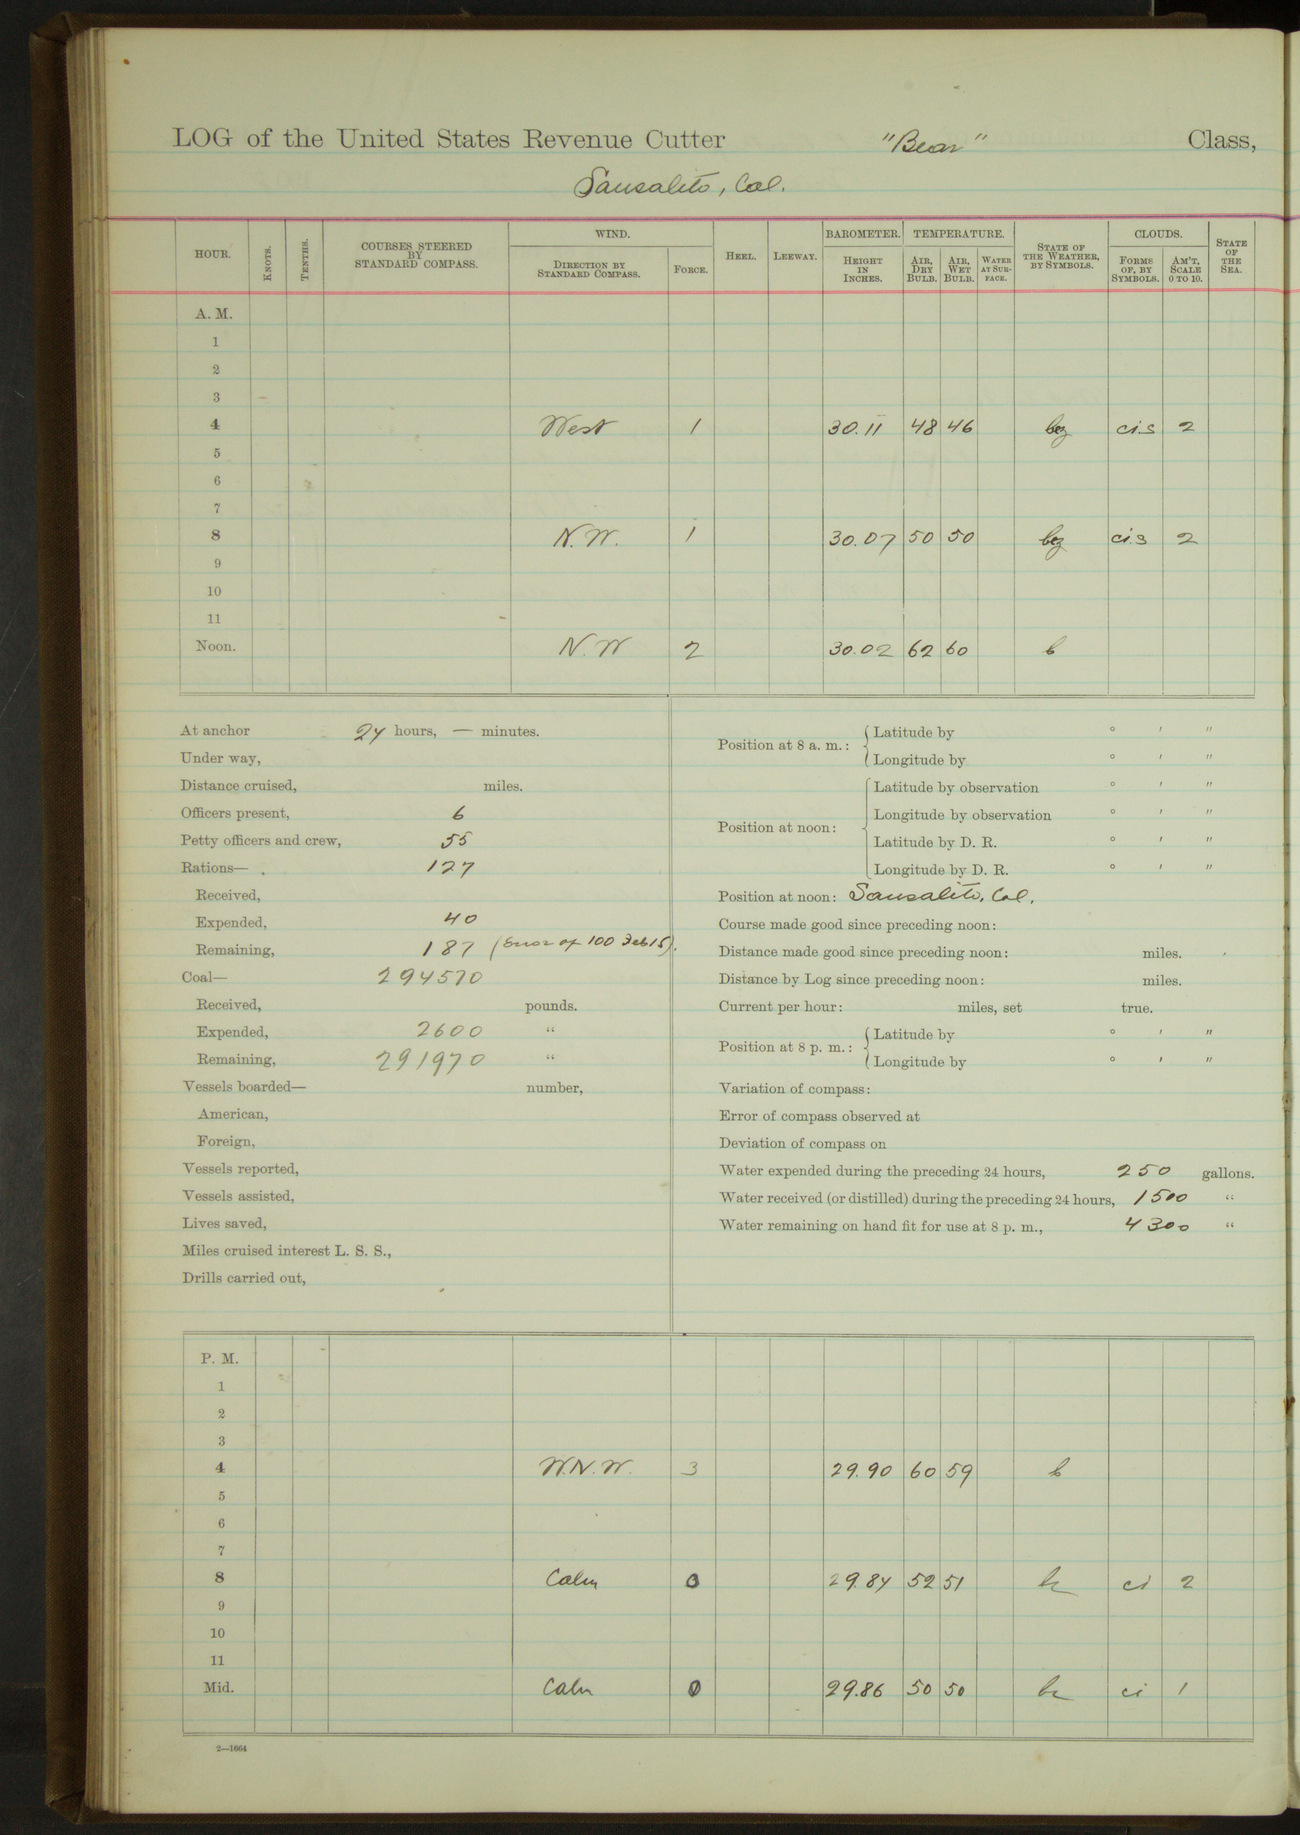 LOG of the United States Revenue Cutter "Bear" Class,
Sausalito, Cal.
HOUR. KNOTS. TENTHS. COURSES STEERED BY STANDARD COMPASS. WIND. DIRECTION BY STANDARD COMPASS. FORCE. HEEL. LEEWAY. BAROMETER. HEIGHT IN INCHES. TEMPERATURE. AIR, DRY BULB. AIR, WET BULB. WATER AT SURFACE. STATE OF THE WEATHER, BY SYMBOLS. CLOUDS. FORMS OF, BY SYMBOLS. AM'T, SCALE 0 TO 10. STATE OF THE SEA.
A. M.
1
2
3
4 West 1 30.11 48 46 cis 2
5
6
7
8 N.W. 1 30.07 50 50 cis 2
9
10
11
Noon. N.W 2 30.02 62 60 b
At anchor 24 hours, — minutes.
Under way,
Distance cruised, miles.
Officers present, 6
Petty officers and crew, 55
Rations— 127
Received,
Expended, 40
Remaining, 187 (Error of 100 Feb 15).
Coal— 294570
Received, pounds.
Expended, 2600 "
Remaining, 291970 "
Vessels boarded— number,
American,
Foreign,
Vessels reported,
Vessels assisted,
Lives saved,
Miles cruised interest L. S. S.,
Drills carried out,
Position at 8 a. m.: Latitude by ° ′ ″
Longitude by ° ′ ″
Position at noon: Latitude by observation ° ′ ″
Longitude by observation ° ′ ″
Latitude by D. R. ° ′ ″
Longitude by D. R. ° ′ ″
Position at noon: Sausalito, Cal.
Course made good since preceding noon:
Distance made good since preceding noon: miles.
Distance by Log since preceding noon: miles.
Current per hour: miles, set true.
Position at 8 p. m.: Latitude by ° ′ ″
Longitude by ° ′ ″
Variation of compass:
Error of compass observed at
Deviation of compass on
Water expended during the preceding 24 hours, 250 gallons.
Water received (or distilled) during the preceding 24 hours, 1500 "
Water remaining on hand fit for use at 8 p. m., 4300 "
P. M.
1
2
3
4 W.N.W. 3 29.90 60 59 b
5
6
7
8 Calm 0 29.84 52 51 ci 2
9
10
11
Mid. Calm 0 29.86 50 50 ci 1
2—1664